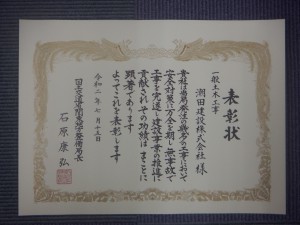 表彰状
一般土木工事
潮田建設株式会社 様
貴社は当局発注の数多の工事において
安全対策に万全を期し無事故で
工事を完遂し建設事業の推進に
貢献されその功績はまことに
顕著であります
よってこれを表彰します
令和二年七月十五日
国土交通省関東地方整備局長
石原康弘